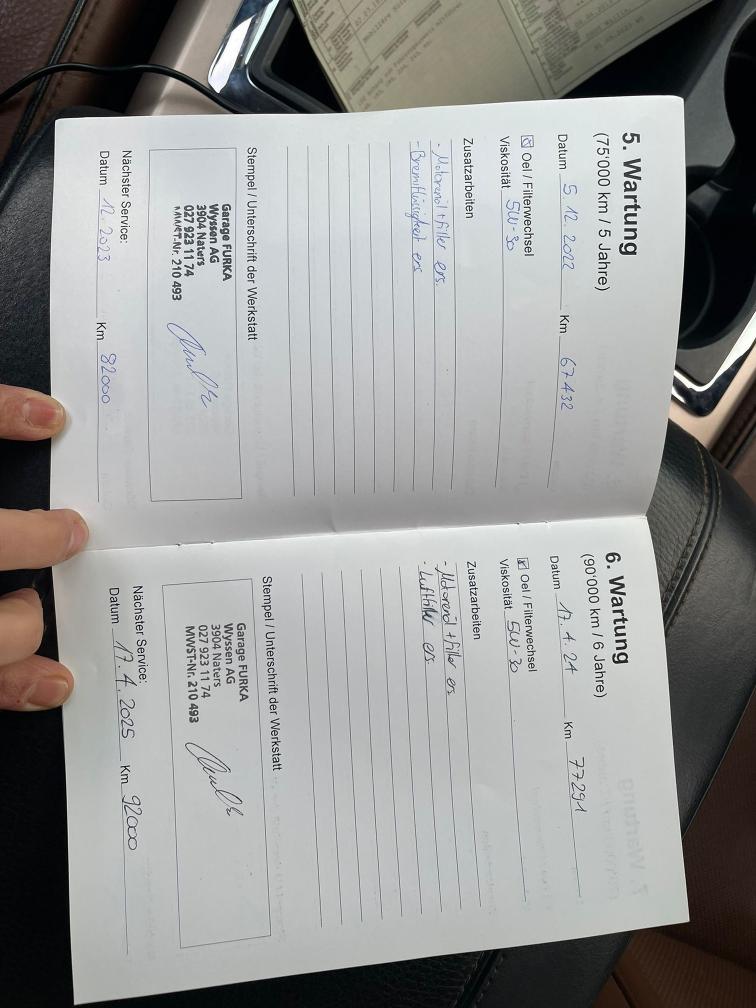 5. Wartung
(75'000 km / 5 Jahre)
Datum 5. 12. 2022 Km 67432
☒ Oel / Filterwechsel
Viskosität 5W-30
Zusatzarbeiten
- Motorenöl + Filter ers.
- Bremsflüssigkeit ers
Stempel / Unterschrift der Werkstatt
Garage FURKA
Wyssen AG
3904 Naters
027 923 11 74
MWST-Nr. 210 493
Nächster Service:
Datum 12. 2023 Km 82000
6. Wartung
(90'000 km / 6 Jahre)
Datum 17. 4. 24 Km 77291
☒ Oel / Filterwechsel
Viskosität 5W-30
Zusatzarbeiten
- Motorenöl + Filter ers
- Luftfilter ers.
Stempel / Unterschrift der Werkstatt
Garage FURKA
Wyssen AG
3904 Naters
027 923 11 74
MWST-Nr. 210 493
Nächster Service:
Datum 17. 4. 2025 Km 92000